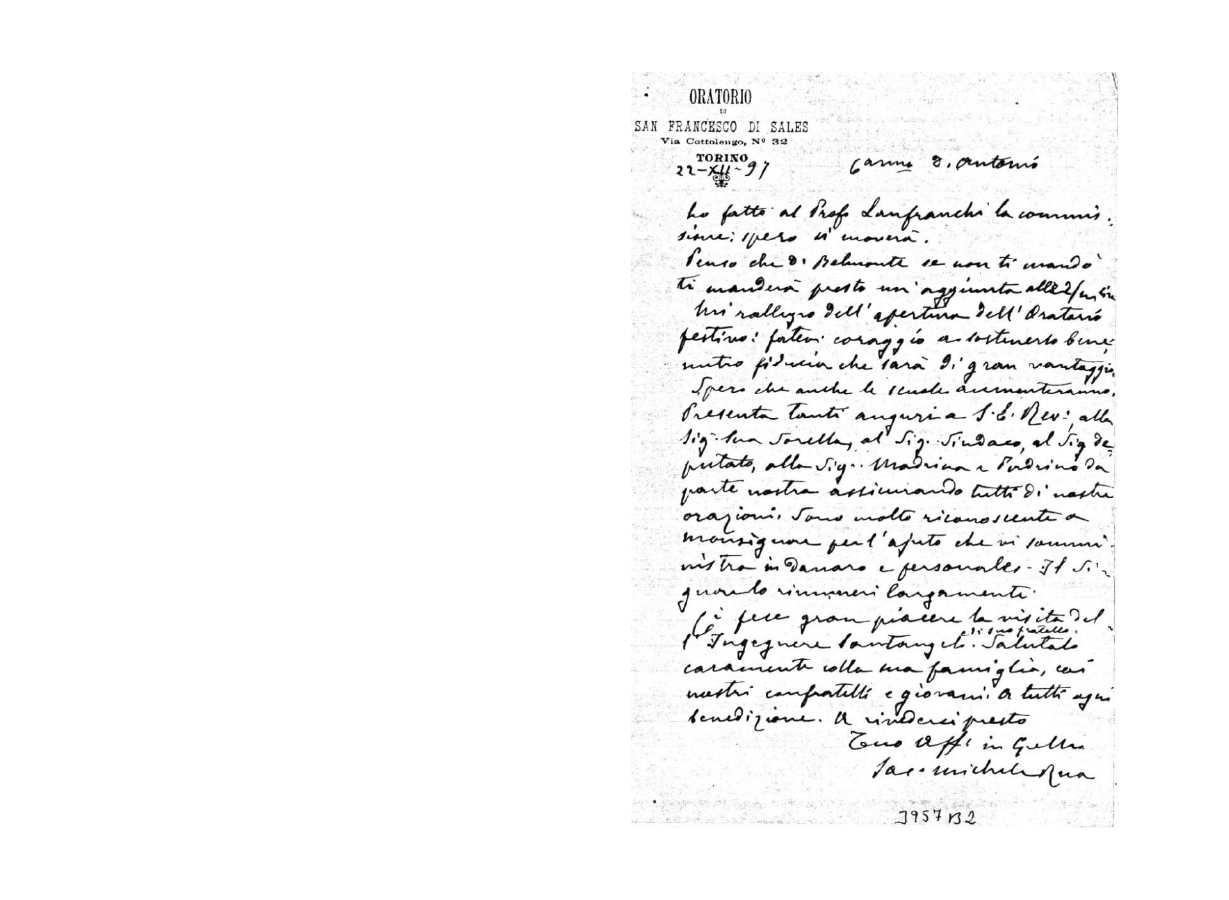 ORATORIO
DI
SAN FRANCESCO DI SALES
Via Cottolengo, Nº 32
TORINO
22-XII-97
Carmo D. Antonio
ho fatto al Profe Lanfranchi la commis-
sione; spero si moverà.
Penso che D. Belmonte se non ti mandò
ti manderà presto un'aggiunta alle
Mi rallegro dell'apertura dell'Oratorio
festivo: fatevi coraggio a sostenerlo bene;
nutro fiducia che sarà di gran vantaggio.
Spero che anche le scuole aumenteranno.
Presenta tanti auguri a S. E. Rev: alla
Sig. Sua Sorella, al Sig. Sindaco, al Sig de-
putato, alla Sig. Madrina e Padrino da
parte nostra assicurando tutti di nostre
orazioni. Sono molto riconoscente a
monsignore per l'ajuto che vi sommi-
nistra in danaro e personale. Il Si-
gnore lo rimuneri largamente.
Ci fece gran piacere la visita del-
l'Ingegnere Santangelo e di suo fratello. Salutalo
caramente colla sua famiglia, coi
nostri confratelli e giovani. A tutti ogni
benedizione. A rivederci presto
Tuo Aff. in G. e M.
Sac. Michele Rua
3957 B2